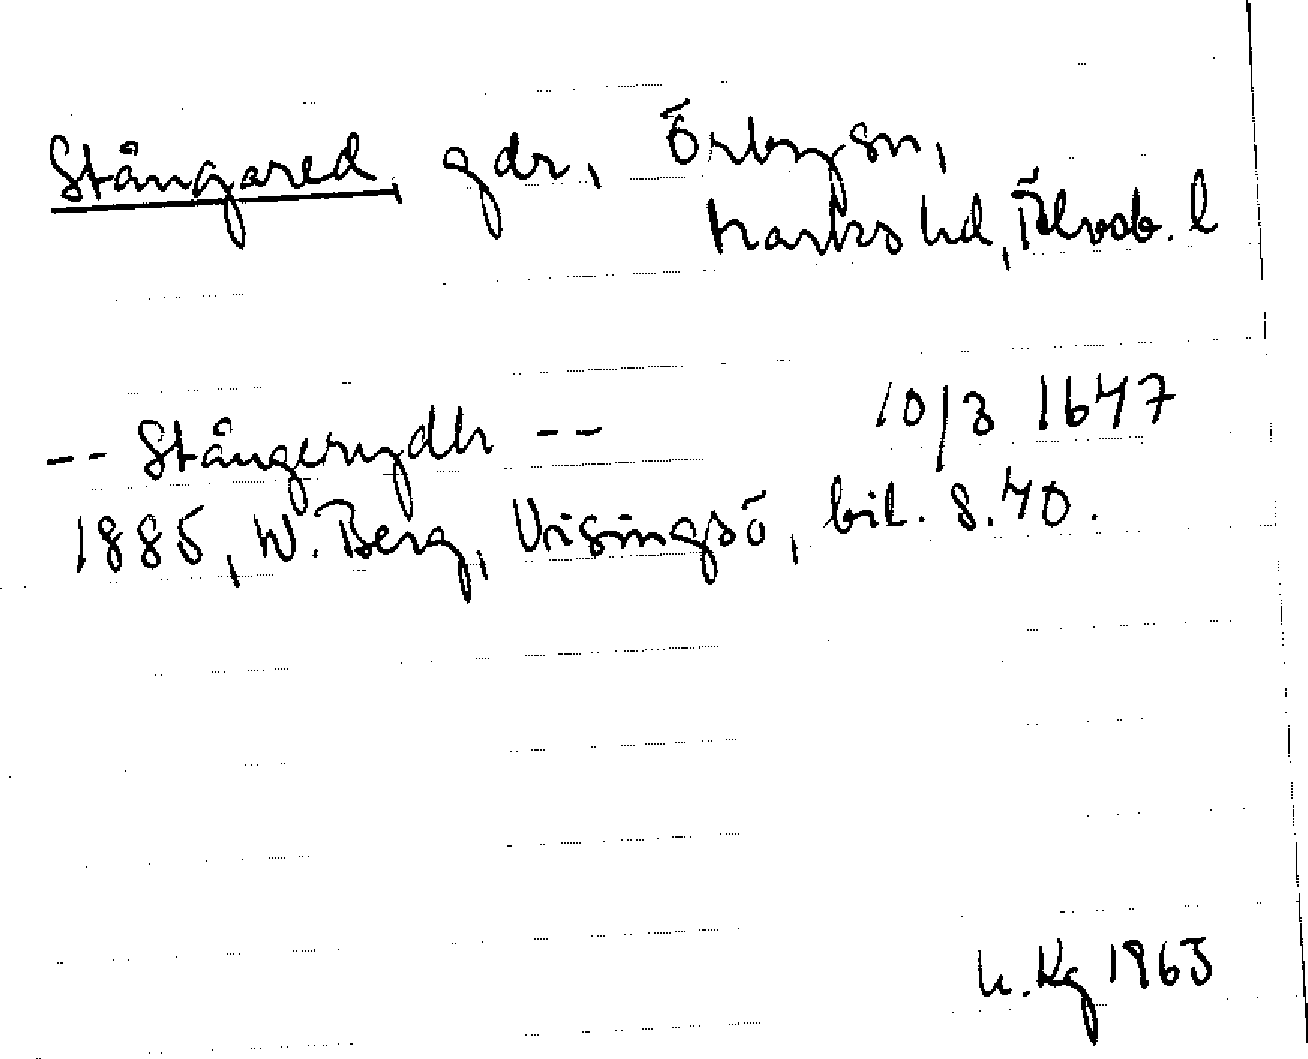 Stångared, gdr, Örby sn,
Marks hd, Älvsb. l
-- Stångerydh -- 10/3 1647
1885, W. Berg, Visingsö, bil. s. 40.
h. Kg 1963